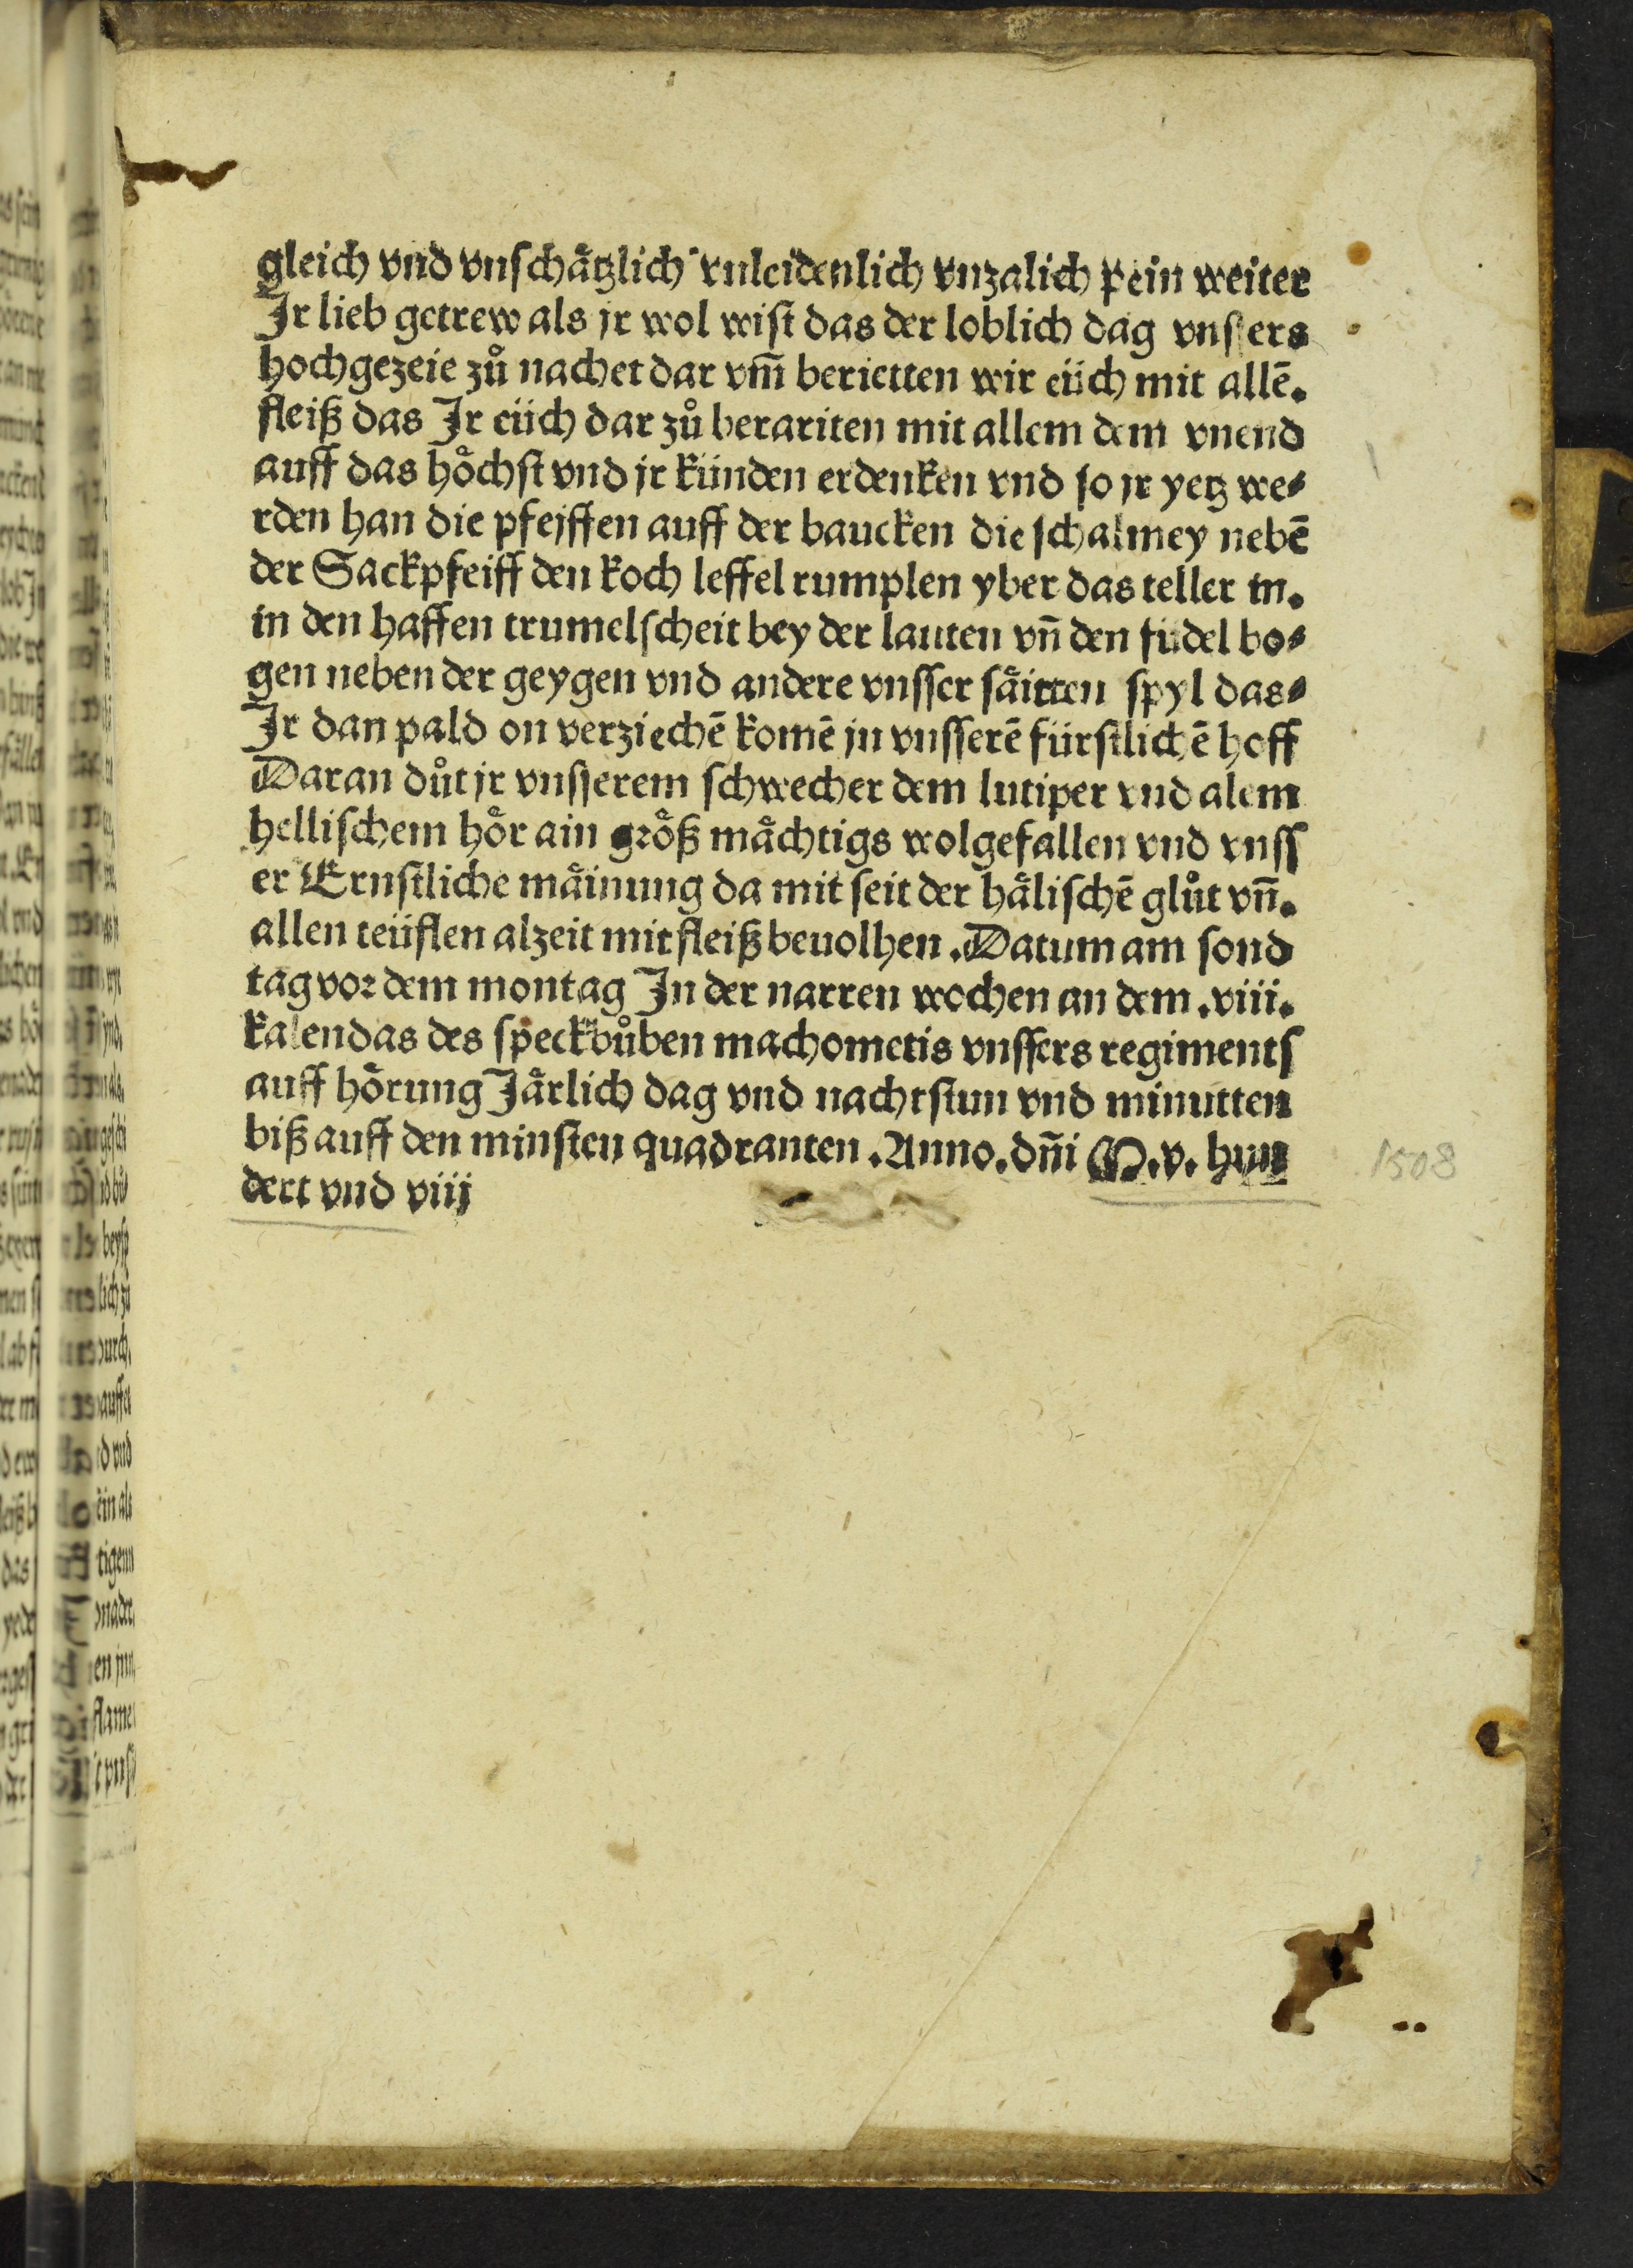 gleich vnd vnschåtzlich vnleidenlich vnzalich pein weiter
Jr lieb getrew als jr wol wist das der loblich dag vnssers
hochgezeie zů nachet dar vm̄ berietten wir eüch mit allē.
fleiß das Jr eüch dar zů berariten mit allem dem vnend
auff das höchst vnd jr künden erdenken vnd so jr yetz we⸗
rden han die pfeiffen auff der baucken die schalmey nebē
der Sackpfeiff den koch leffel rumplen yber das teller in.
in den haffen trumelscheit bey der lauten vn̄ den fudel bo⸗
gen neben der geygen vnd andere vnsser såitten spyl das⸗
Jr dan pald on verziechē komē jn vnsserē fürstlichē hoff
Daran důt jr vnsserem schwecher dem lutiper vnd alem
hellischem hör ain größ måchtigs wolgefallen vnd vnss
er Ernstliche måinung da mit seit der hålischē glůt vn̄.
allen teüflen alzeit mit fleiß beuolhen. Datum am sond
tag vor dem montag Jn der narren wochen an dem .viii.
kalendas des speckbůben machometis vnssers regiments
auff hörung Jårlich dag vnd nachtstun vnd minutten
biß auff den minsten quadranten. Anno. dn̄i M.v. hun
dert vnd viij
1508